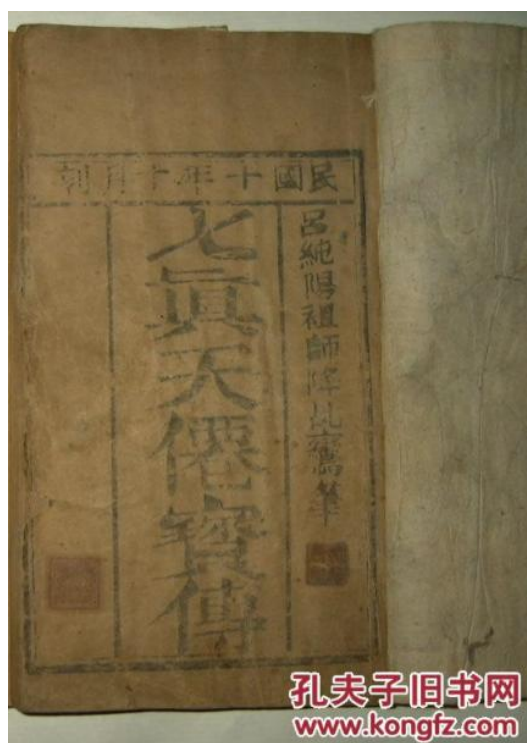 民國十年十月刻
呂純陽祖師降鸞筆
七眞天僊寶傳
孔夫子旧书网
www.kongfz.com